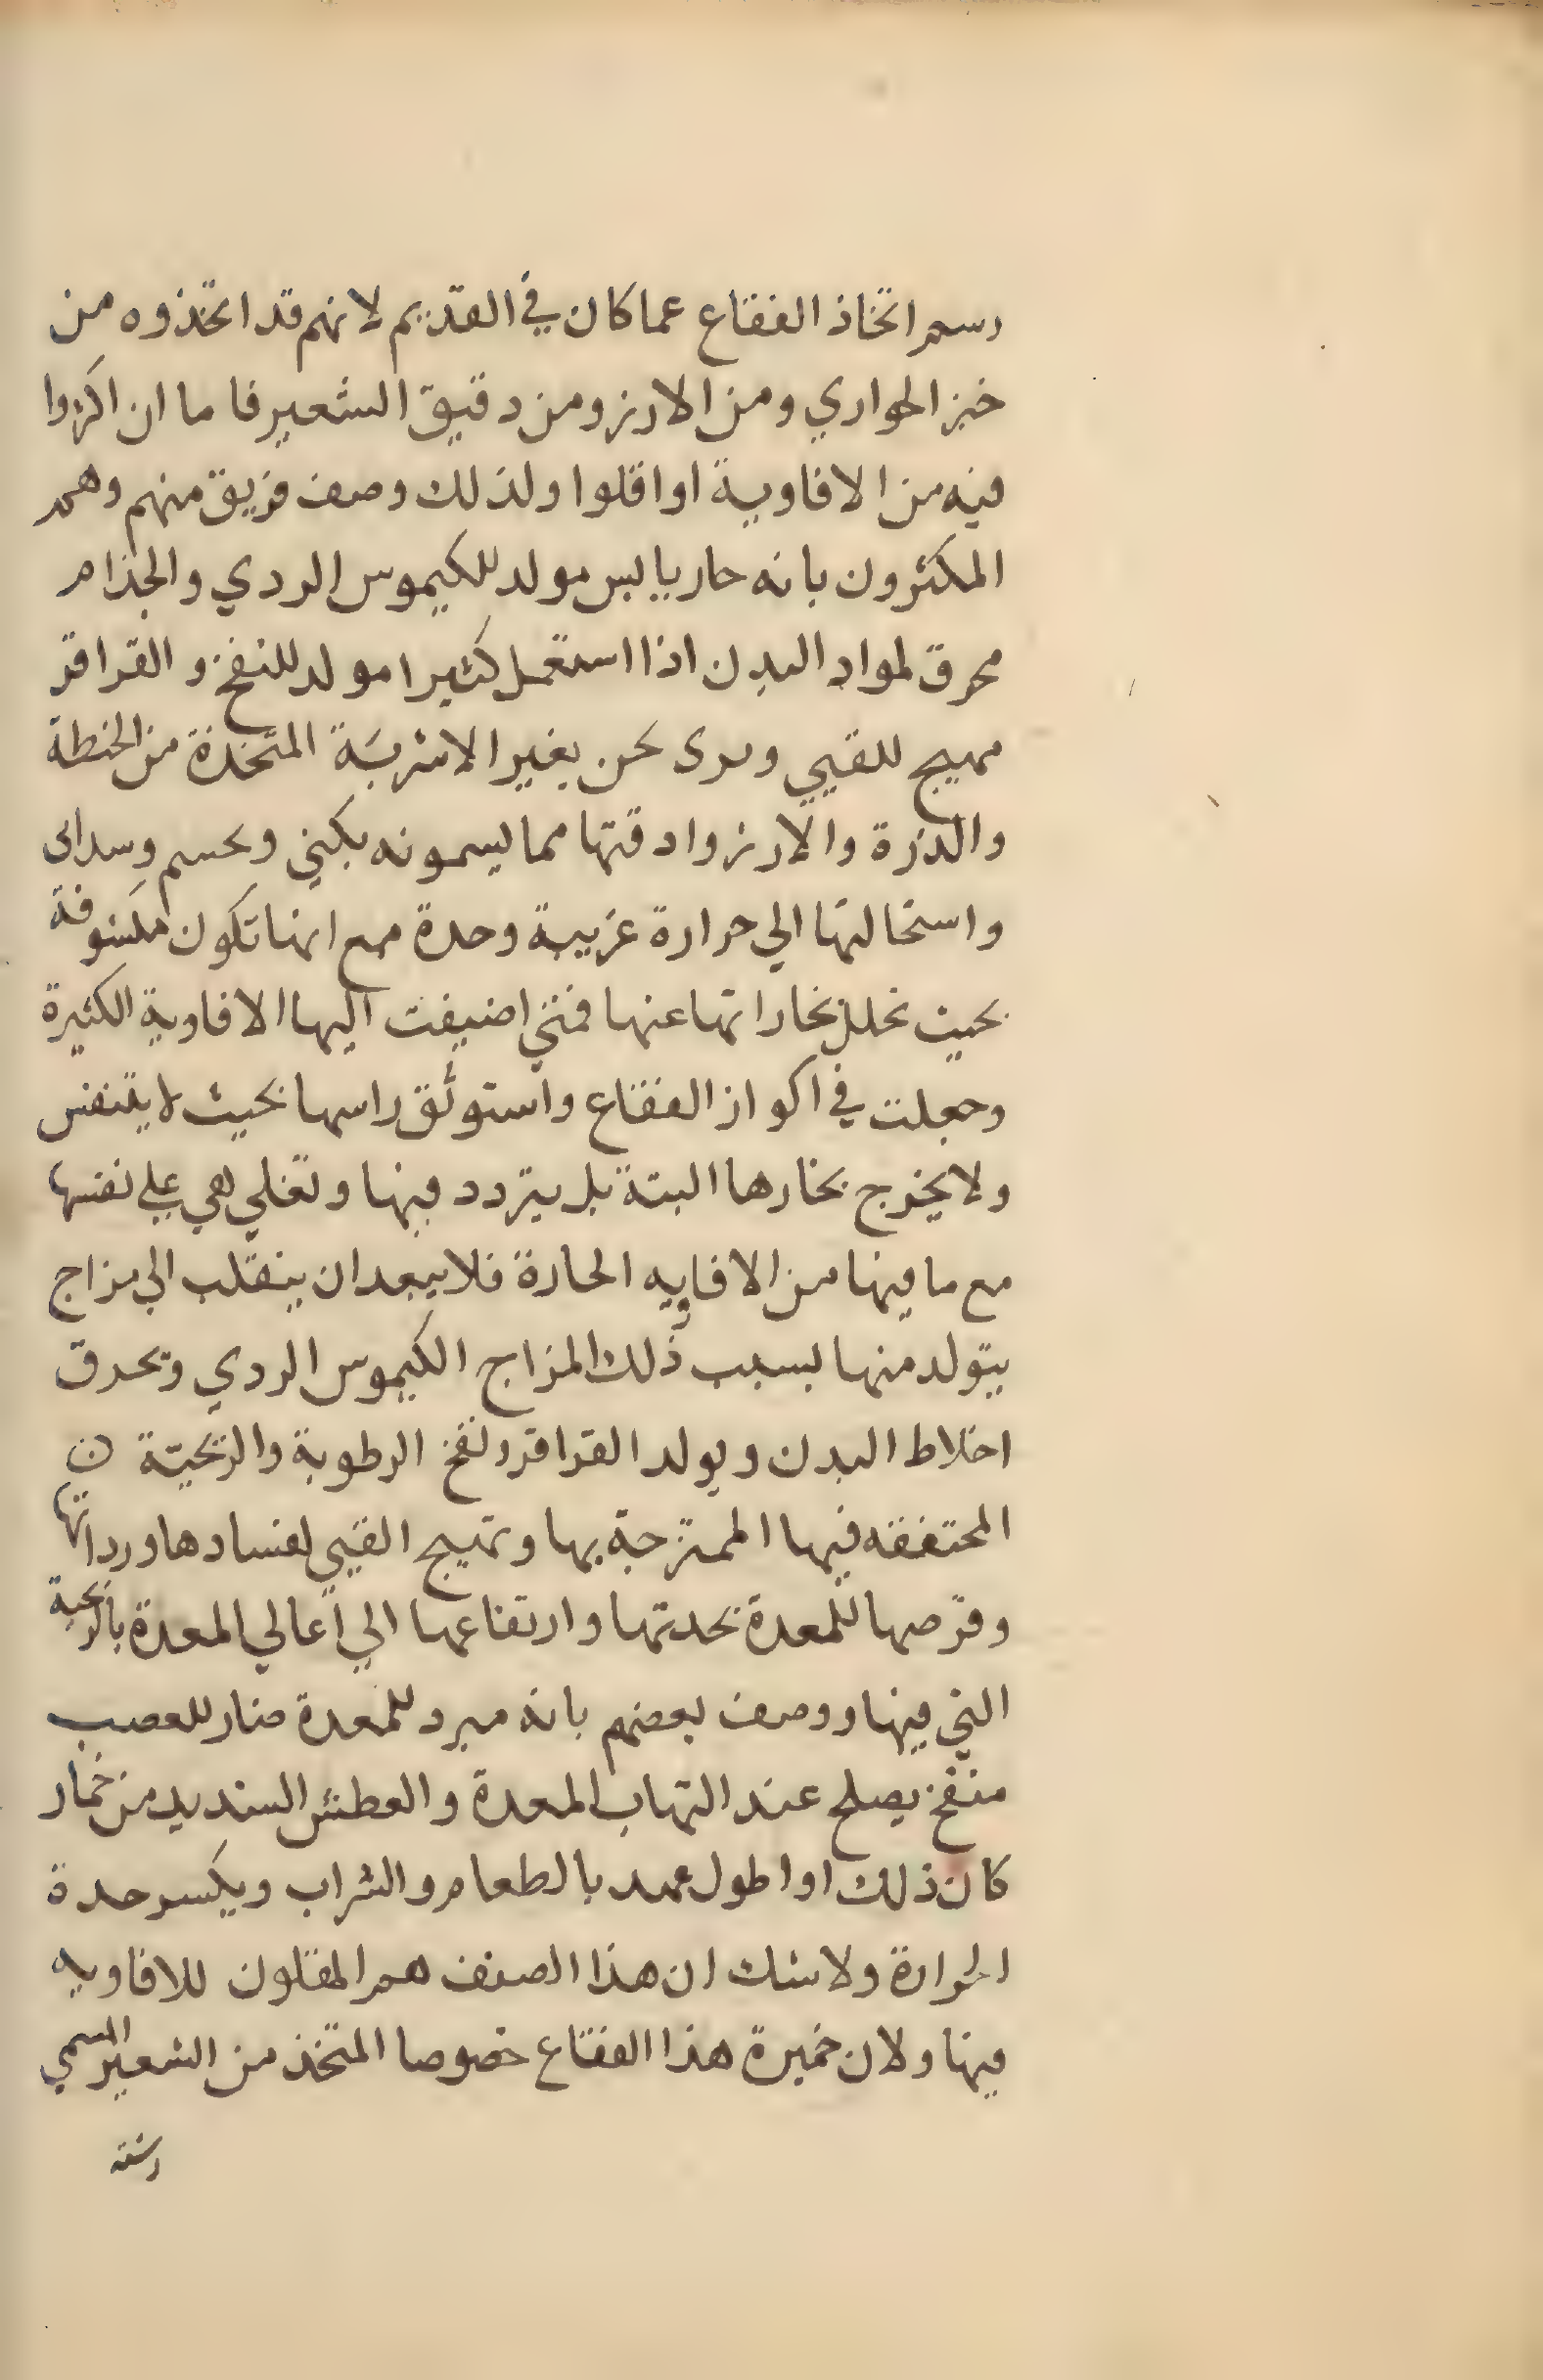 رسم اتخاذ الفقاع عما كان في القديم لانهم قد اتخذوه من
خبز الحواري ومن الارز ومن دقيق الشعير فاما ان اكثروا
فيه من الافاوية او اقلوا ولذلك وصف فريق منهم وهم
المكثرون بانه حار يابس مولد للكيموس الردي والجذام
محرق لمواد البدن اذا استعمل كثيرا مولد للنفخ و القراقر
مهيج للقيي ونرى نحن بغير الاشربة المتخذة من الحنطة
والذرة والارز وادقتها مما يسمونه بكني
واستحالتها الي حرارة غريبة وحدة مع انها تكون مكشوفة
بحيث تحلل بخاراتها عنها فمتي اضيفت اليها الافاوية الكثيرة
وجعلت في اكواز الفقاع واستوثق راسها بحيث لا يتنفس
ولا يخرج بخارها البتة بل يتردد فيها وتغلي هي علي نفسها
مع ما فيها من الافاويه الحارة فلا يبعد ان ينقلب الي مزاج
يتولد منها بسبب ذلك المزاج الكيموس الردي وتحرق
اخلاط البدن ويولد القراقر ونفخ الرطوبة والريحية ن
المحتقنه فيها الممتزجة بها وتهيج القيي لفسادها ورداتها
وقرصها للمعدة بحدتها وارتفاعها الي اعالي المعدة بالريحية
التي فيها ووصف بعضهم بانه مبرد للمعدة ضار للعصب
منفخ يصلح عند التهاب المعدة والعطش الشديد من خمار
كان ذلك او اطول عهد بالطعام والشراب ويكسر حدة
الحرارة ولا شك ان هذا الصنف هم المقلون للافاويه
فيها ولان خميرة هذا الفقاع خصوصا المتخذ من الشعير المسمي
رشته